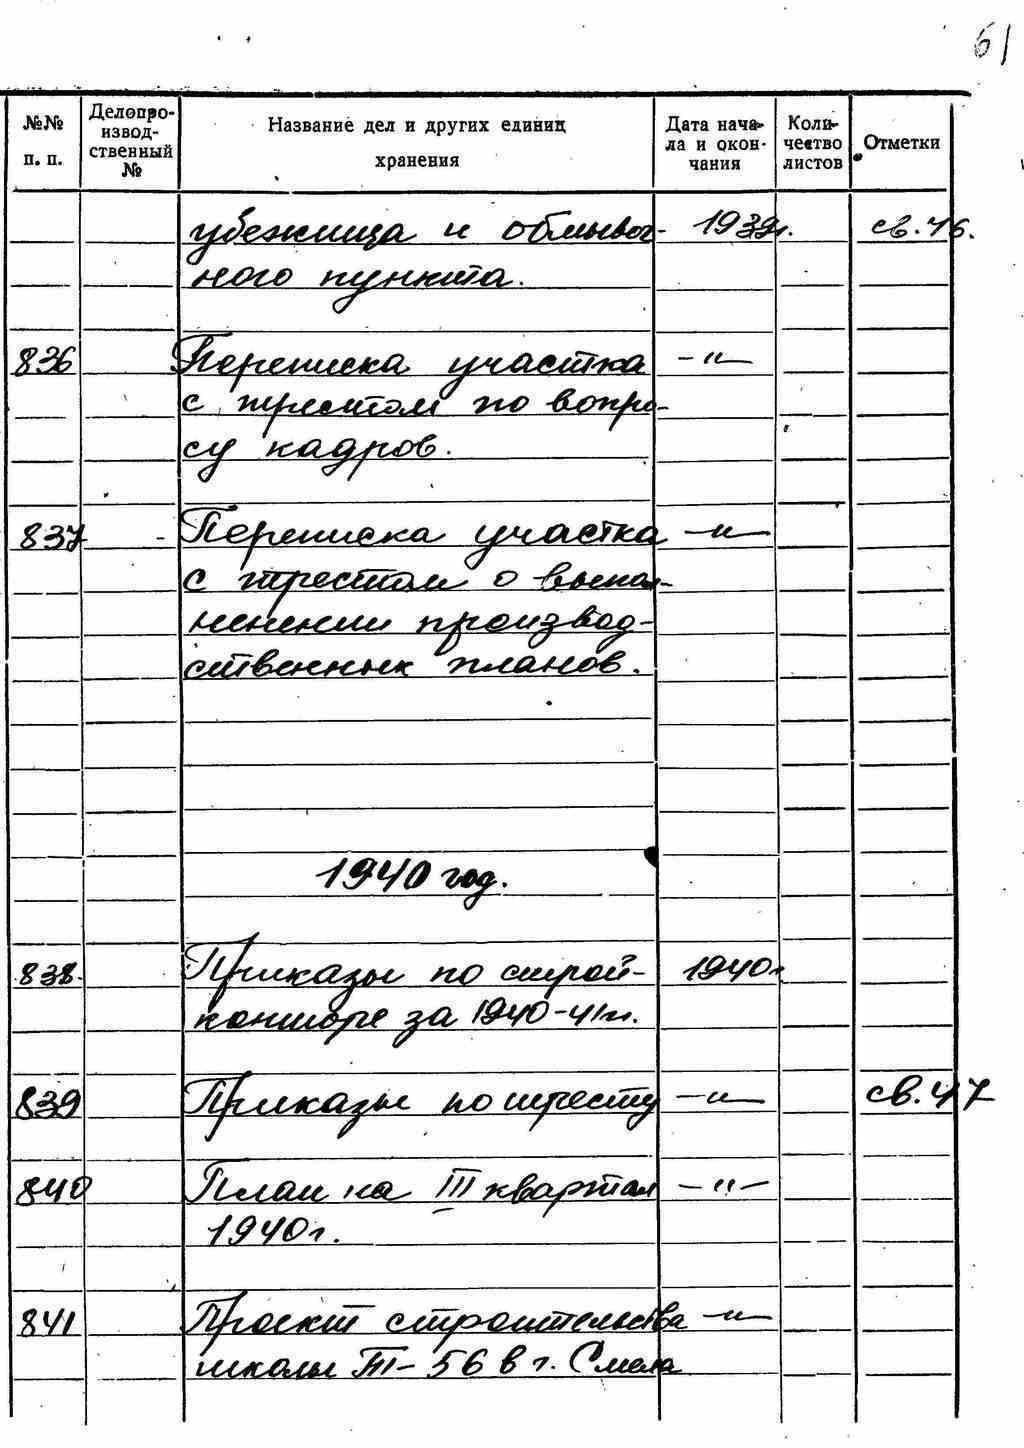 61
№№ п. п. Делопроизводственный № Название дел и других единиц хранения Дата начала и окончания Количество листов Отметки
убежища и обмывоч- 1939г. св. 46.
ного пункта.
836 Переписка участка -"-
с трестом по вопро-
су кадров.
837 - Переписка участка -"-
с трестом о выпол-
нении производ-
ственных планов.
1940 год.
838. Приказы по строй- 1940г.
конторе за 1940-41гг.
839 Приказы по тресту -"- св. 47
840 План на III квартал -"-
1940г.
841 Проект строительства -"-
школы III-56 в г. Смела